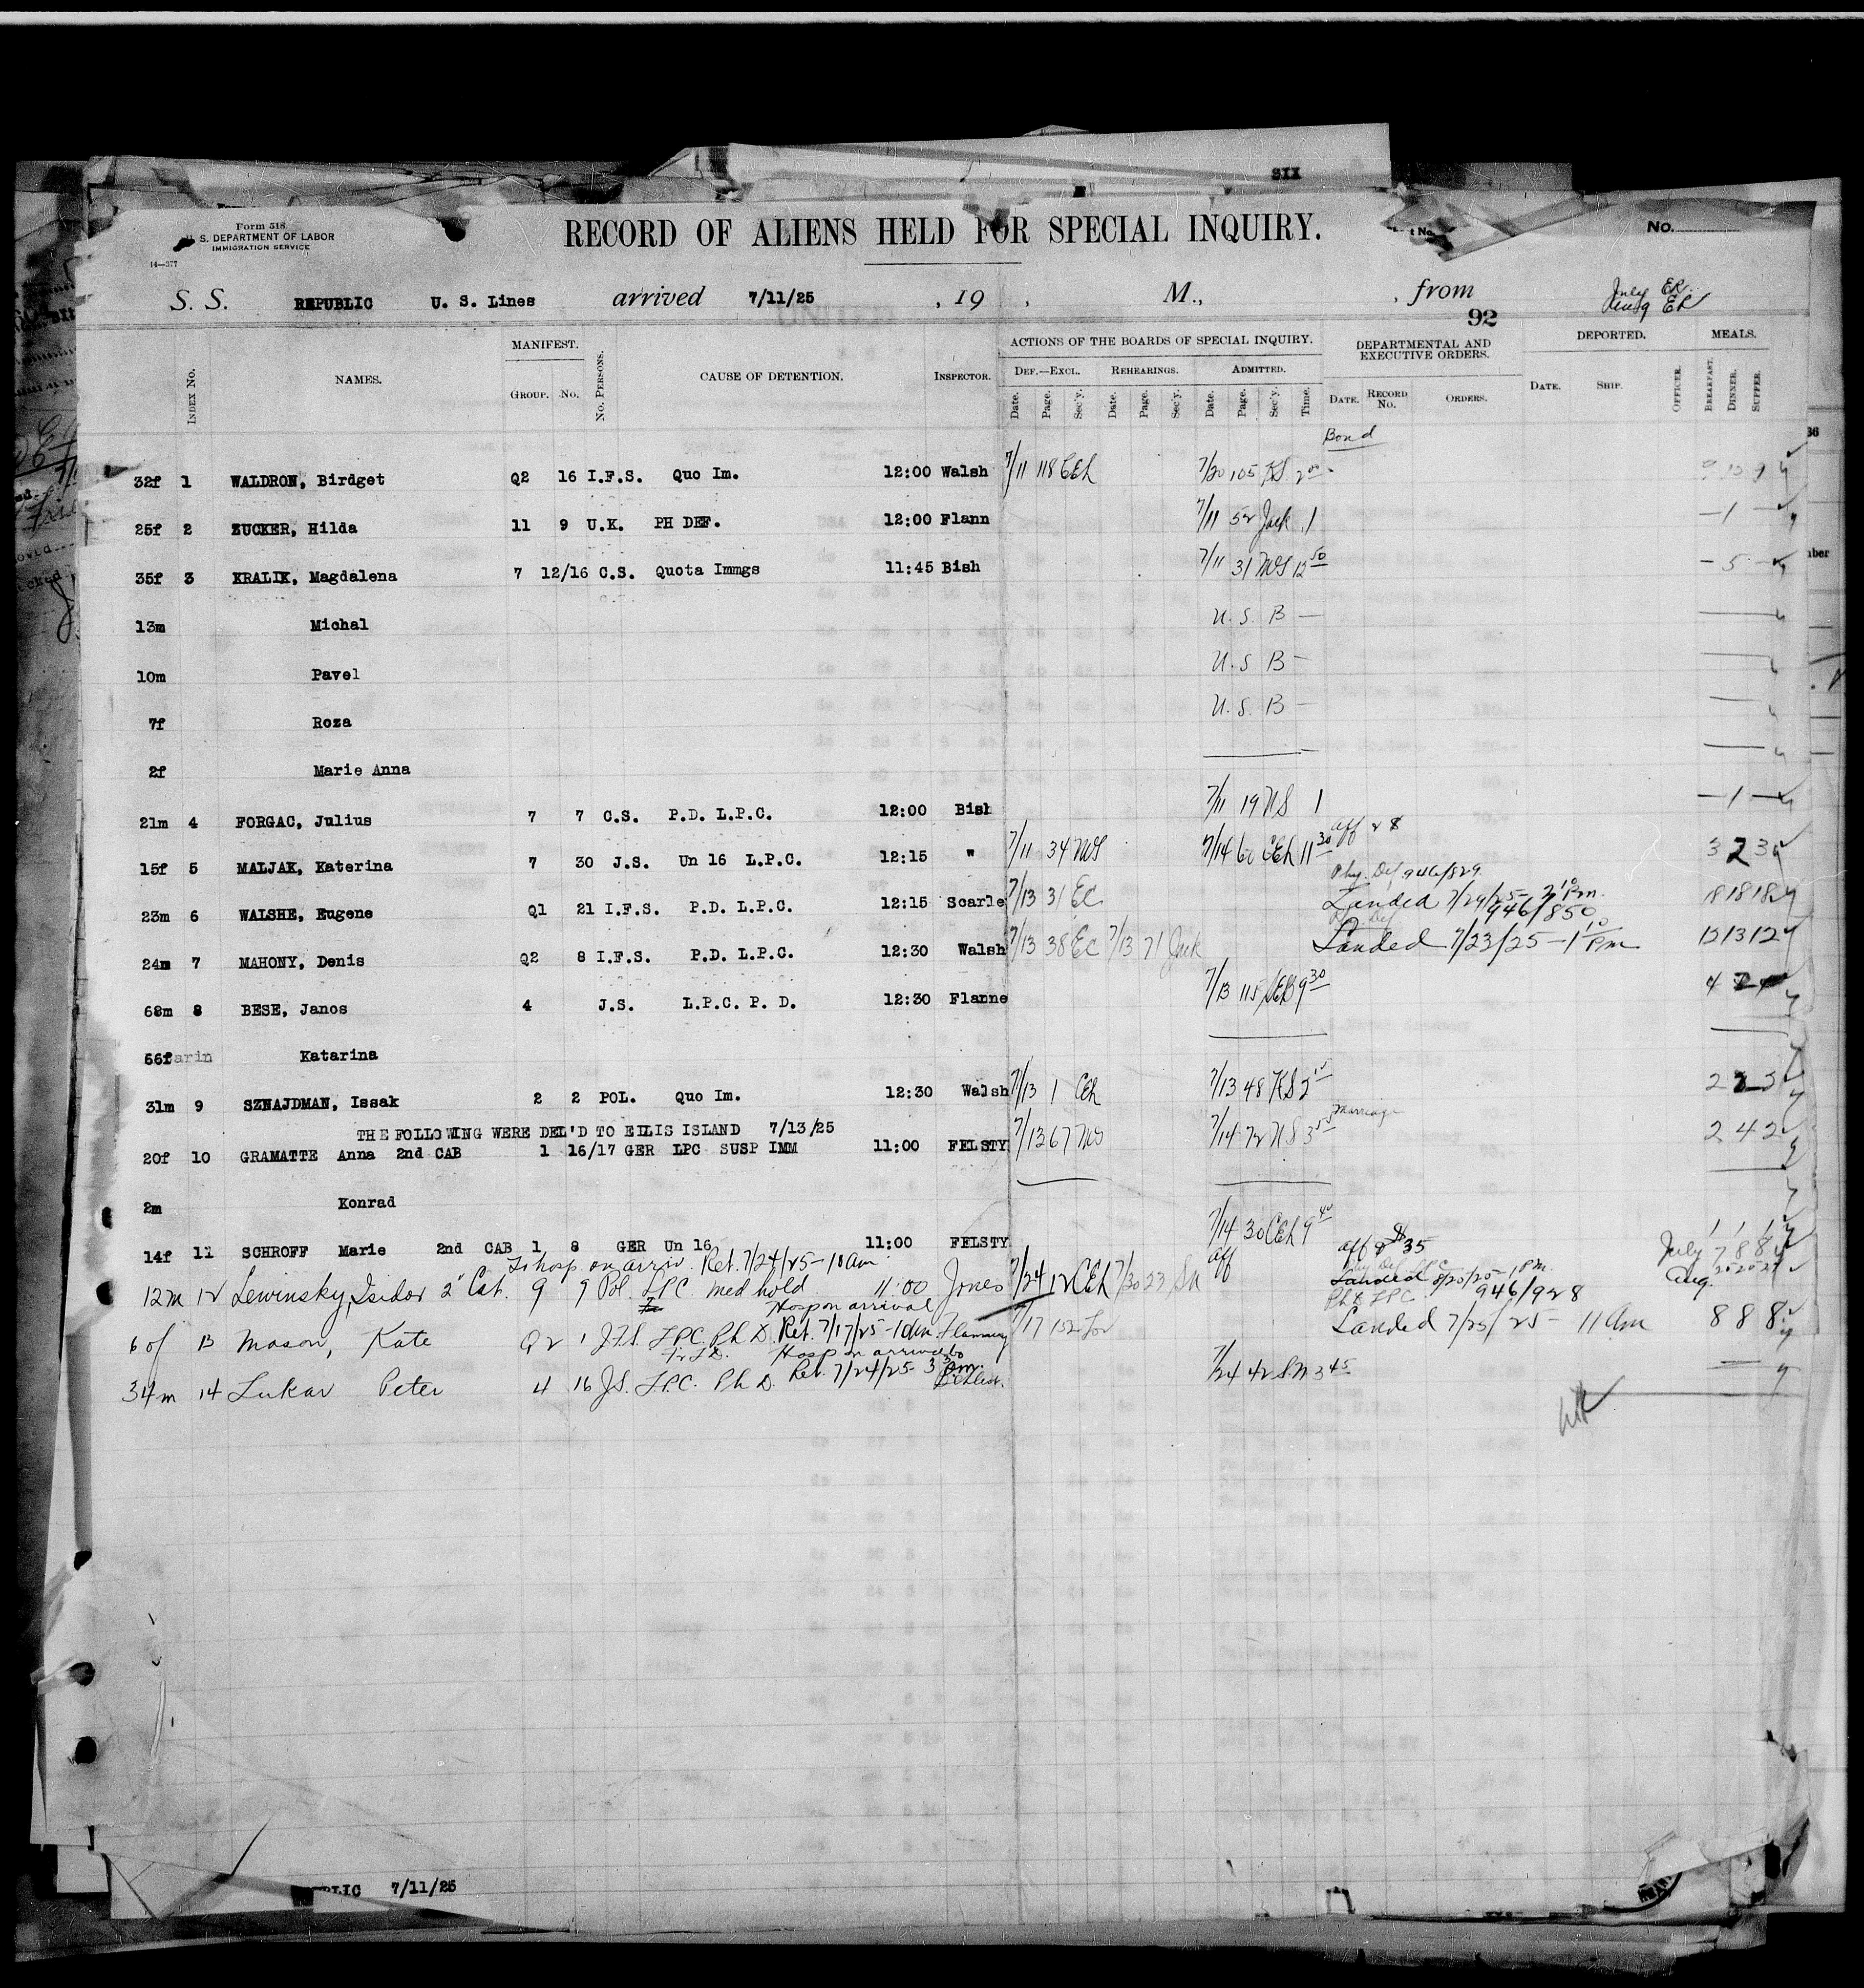 SII
Form 518
U. S. DEPARTMENT OF LABOR
IMMIGRATION SERVICE
14—377
RECORD OF ALIENS HELD FOR SPECIAL INQUIRY.
No.
S. S. REPUBLIC U. S. Lines arrived 7/11/25 , 19 , M., , from
July ER.
Aug ER
92
INDEX No. NAMES. MANIFEST. GROUP. No. No. PERSONS. CAUSE OF DETENTION. INSPECTOR. ACTIONS OF THE BOARDS OF SPECIAL INQUIRY. DEF.—EXCL. Date. Page. Sec'y. REHEARINGS. Date. Page. Sec'y. ADMITTED. Date. Page. Sec'y. Time. DEPARTMENTAL AND EXECUTIVE ORDERS. DATE. RECORD No. ORDERS. DEPORTED. DATE. SHIP. OFFICER. MEALS. BREAKFAST. DINNER. SUPPER.
Bond
32f 1 WALDRON, Birdget Q2 16 I.F.S. Quo Im. 12:00 Walsh 7/11 118 CEh 7/20 105 KS 2 00
25f 2 ZUCKER, Hilda 11 9 U.K. PH DEF. 12:00 Flann 7/11 52 Jack 1 — 1 —
35f 3 KRALIK, Magdalena 7 12/16 C.S. Quota Immgs 11:45 Bish 7/11 31 MS 12 50 — 5 —
13m Michal U. S. B —
10m Pavel U. S B —
7f Roza U. S. B —
2f Marie Anna
21m 4 FORGAC, Julius 7 7 C.S. P.D. L.P.C. 12:00 Bish 7/11 19 NS 1 — 1 —
15f 5 MALJAK, Katerina 7 30 J.S. Un 16 L.P.C. 12:15 " 7/11 34 MS 7/14 60 CEh 11 30 aff & $ 3 2 3
Phy. Def 946/829
23m 6 WALSHE, Eugene Q1 21 I.F.S. P.D. L.P.C. 12:15 Scarle 7/13 31 EC Landed 7/29/25 - 2 10 Pm. 18 18 18
946/850
24m 7 MAHONY, Denis Q2 8 I.F.S. P.D. L.P.C. 12:30 Walsh 7/13 38 EC 7/13 71 Jack Landed 7/23/25 - 1 10 Pm 13 13 12
68m 8 BESE, Janos 4 J.S. L.P.C. P. D. 12:30 Flanne 7/13 115 9 30
56f Katarina
31m 9 SZNAJDMAN, Issak 2 2 POL. Quo Im. 12:30 Walsh 7/13 1 CEh 7/13 48 KS
THE FOLLOWING WERE DEL'D TO ELLIS ISLAND 7/13/25
20f 10 GRAMATTE Anna 2nd CAB 1 16/17 GER LPC SUSP IMM 11:00 FELSTY 7/13 67 MS 7/14 72 NS Marriage 2 4 2
2m Konrad
14f 11 SCHROFF Marie 2nd CAB 1 8 GER Un 16 11:00 FELSTY 7/14 30 CEh 9 40 aff & $35 1 1 1
To hosp on arriv. Ret. 7/24/25 - 10 am aff July 7 8 8
12m 12 Lewinsky, Isidor 2" Cab. 9 9 Pol. LPC med hold 11:00 Jones 7/24 12 CEh 7/30 23 SN Landed 8/20/25 - 1 P.M. Aug. 20 20 20
946/928
Hosp on arrival Ph D LPC
60f 13 Mason, Kate Q2 1 I.F.S. LPC. Ph D. Ret. 7/17/25 - 10 am. Flannery 7/17 152 Landed 7/25/25 - 11 am 8 8 8
Hosp on arrival to
34m 14 Lukar Peter 4 16 J.S. LPC. Ph D. Ret. 7/24/25 - 3 30 pm. 7/24 42 SN 3 45
REPUBLIC 7/11/25